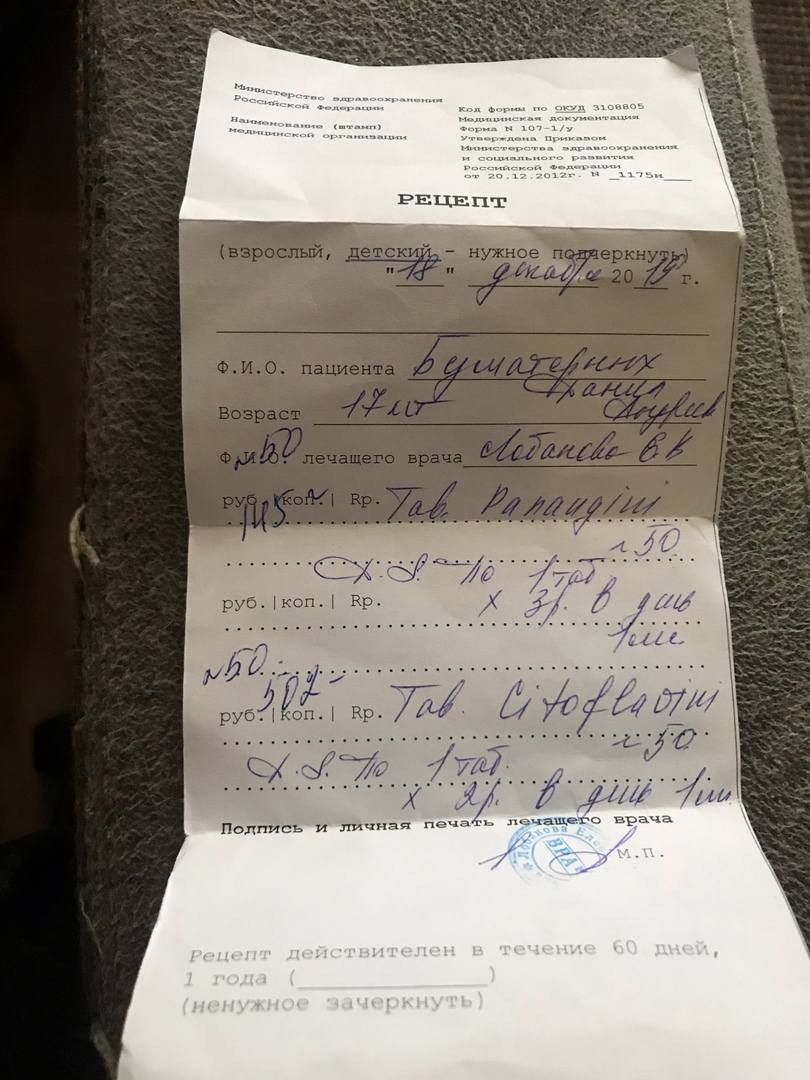 Министерство здравоохранения
Российской Федерации
Наименование (штамп)
медицинской организации
Код формы по ОКУД 3108805
Медицинская документация
Форма N 107-1/у
Утверждена Приказом
Министерства здравоохранения
и социального развития
Российской Федерации
от 20.12.2012г. N _1175н____
РЕЦЕПТ
(взрослый, детский - нужное подчеркнуть)
"18" декабря 2019 г.
Ф.И.О. пациента Бушатерных
Данил
Возраст 17 лет
Ф.И.О. лечащего врача Лобанова Е К
N50
руб.|коп.| Rp. Tab. Panangini
N 50
D. S. По 1 таб
руб.|коп.| Rp. x 3р. в день
1 мес
N50 -
502 -
руб.|коп.| Rp. Tab. Citoflavini
N 50
D. S. По 1 таб.
x 2р. в день 1 м.
Подпись и личная печать лечащего врача
Лобанова Еле
ВРА
М.П.
Рецепт действителен в течение 60 дней,
1 года (_______________)
(ненужное зачеркнуть)